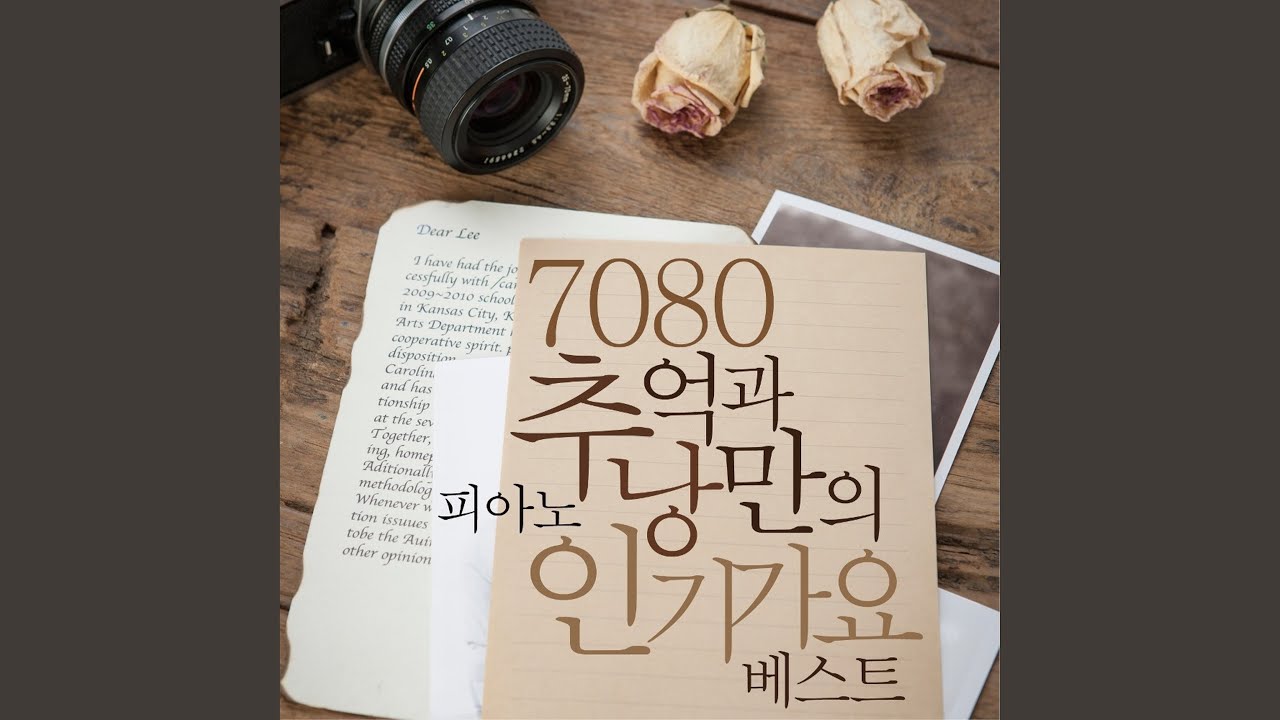 Dear Lee
I have had the
cessfully with /
2009~2010 school
in Kansas City,
Arts Department
cooperative spirit.
disposition
and has
tionship
at the
Together,
methodolog
Whenever
tion issuues
tobe the
other opinion
7080
추억과
낭만의
피아노
인기가요
베스트